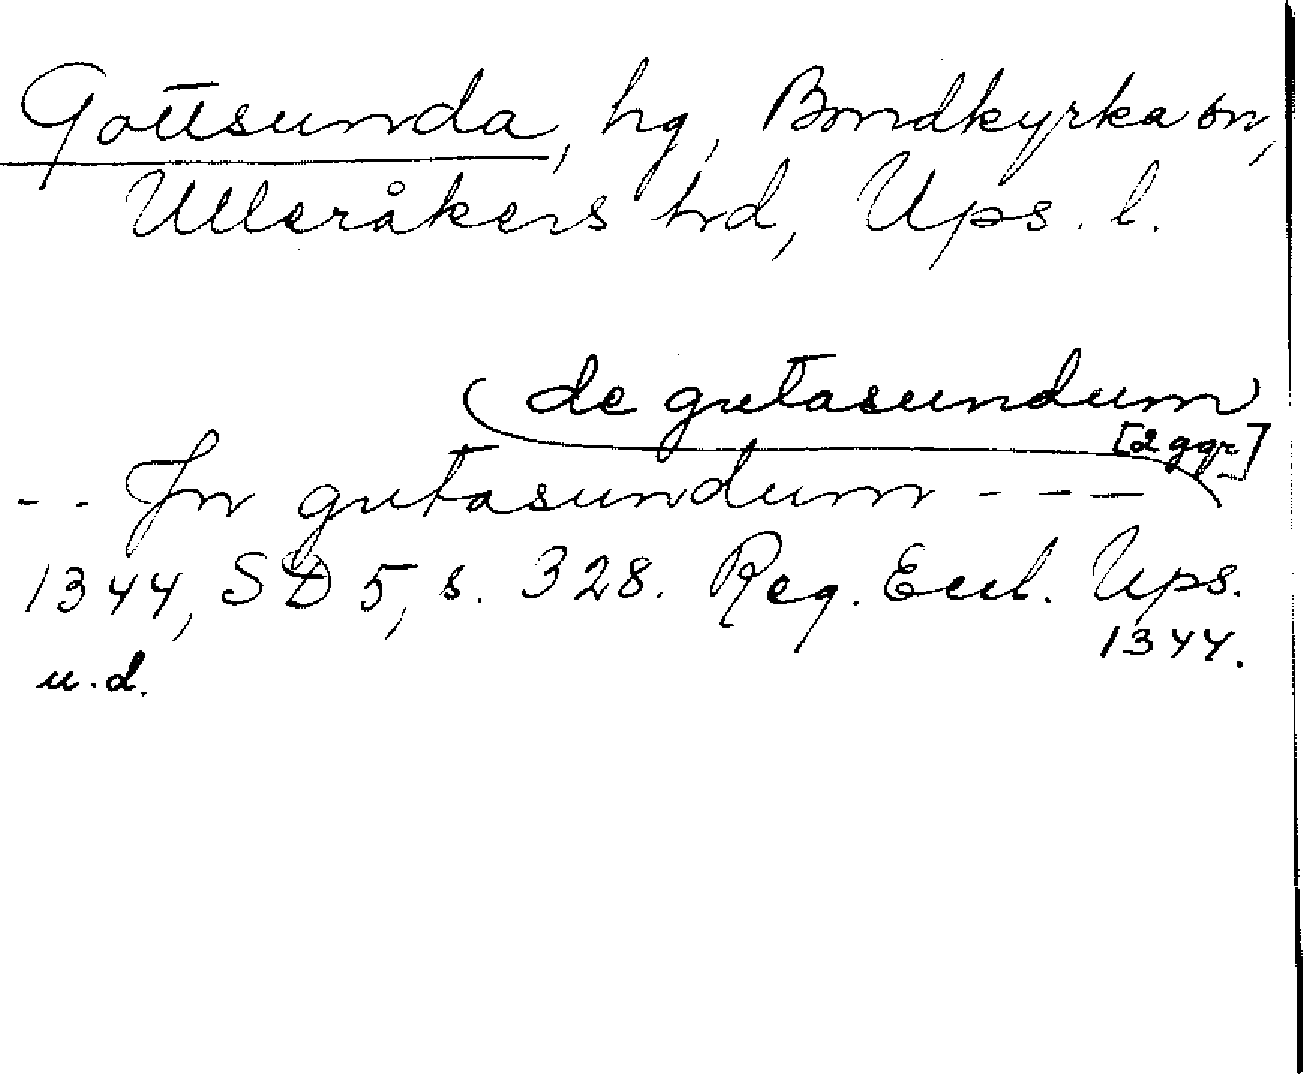 Gottsunda, hg, Bondkyrka sn,
Ulleråkers hd, Ups. l.
(de gutasundum)
[2 ggr]
- - Jn gutasundum - - -
1344, SD 5, s. 328. Reg. Eccl. Ups.
1344.
u.d.